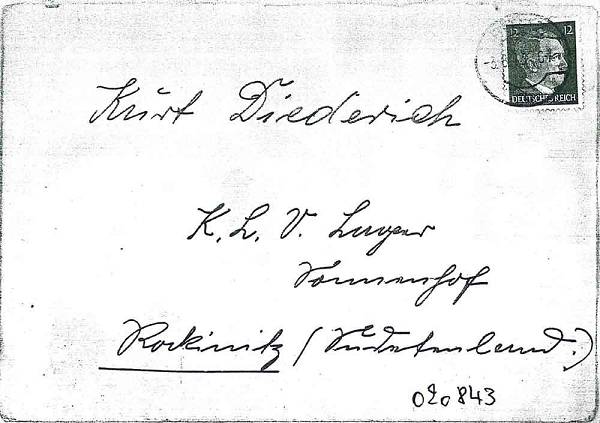 12 12
DEUTSCHES REICH
Kurt Diederich
K. L. V. Lager
Sonnenhof
Rockinitz (Sudetenland.)
020843